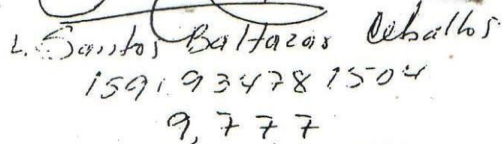 L. Santos Baltazar Ceballos
1591934781504
9,777